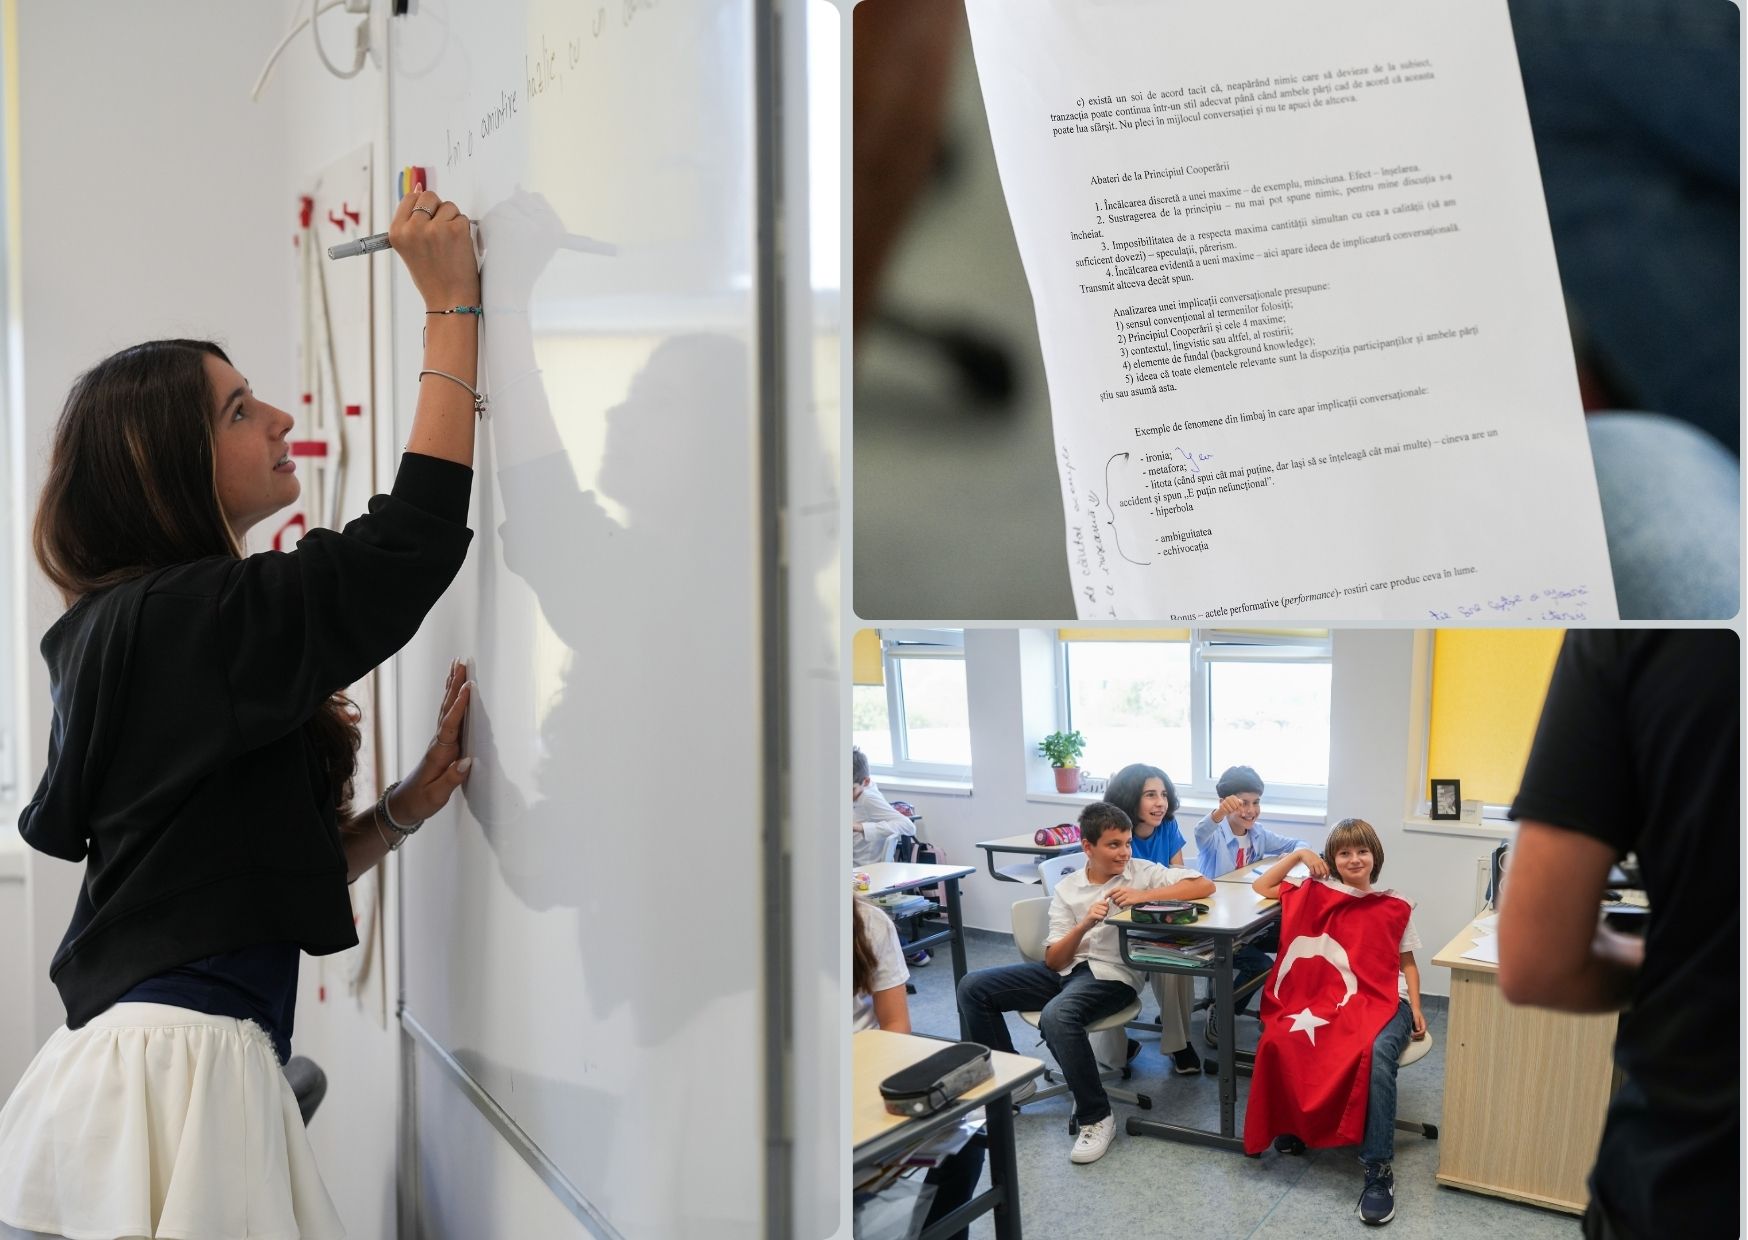 Am o amintire hazlie, cu un
c) există un soi de acord tacit că, neapărând nimic care să devieze de la subiect,
tranzacția poate continua într-un stil adecvat până când ambele părți cad de acord că aceasta
poate lua sfârșit. Nu pleci în mijlocul conversației și nu te apuci de altceva.
Abateri de la Principiul Cooperării
1. Încălcarea discretă a unei maxime – de exemplu, minciuna. Efect – înșelarea.
2. Sustragerea de la principiu – nu mai pot spune nimic, pentru mine discuția s-a
încheiat.
3. Imposibilitatea de a respecta maxima cantității simultan cu cea a calității (să am
suficicent dovezi) – speculații, părerism.
4. Încălcarea evidentă a ueni maxime – aici apare ideea de implicatură conversațională.
Transmit altceva decât spun.
Analizarea unei implicații conversaționale presupune:
1) sensul convențional al termenilor folosiți;
2) Principiul Cooperării și cele 4 maxime;
3) contextul, lingvistic sau altfel, al rostirii;
4) elemente de fundal (background knowledge);
5) ideea că toate elementele relevante sunt la dispoziția participanților și ambele părți
știu sau asumă asta.
Exemple de fenomene din limbaj în care apar implicații conversaționale:
- ironia;
- metafora;
- litota (când spui cât mai puține, dar lași să se înțeleagă cât mai multe) – cineva are un
accident și spun „E puțin nefuncțional”.
- hiperbola
- ambiguitatea
- echivocația
de căutat exemple
Bonus – actele performative (performance)- rostiri care produc ceva în lume.